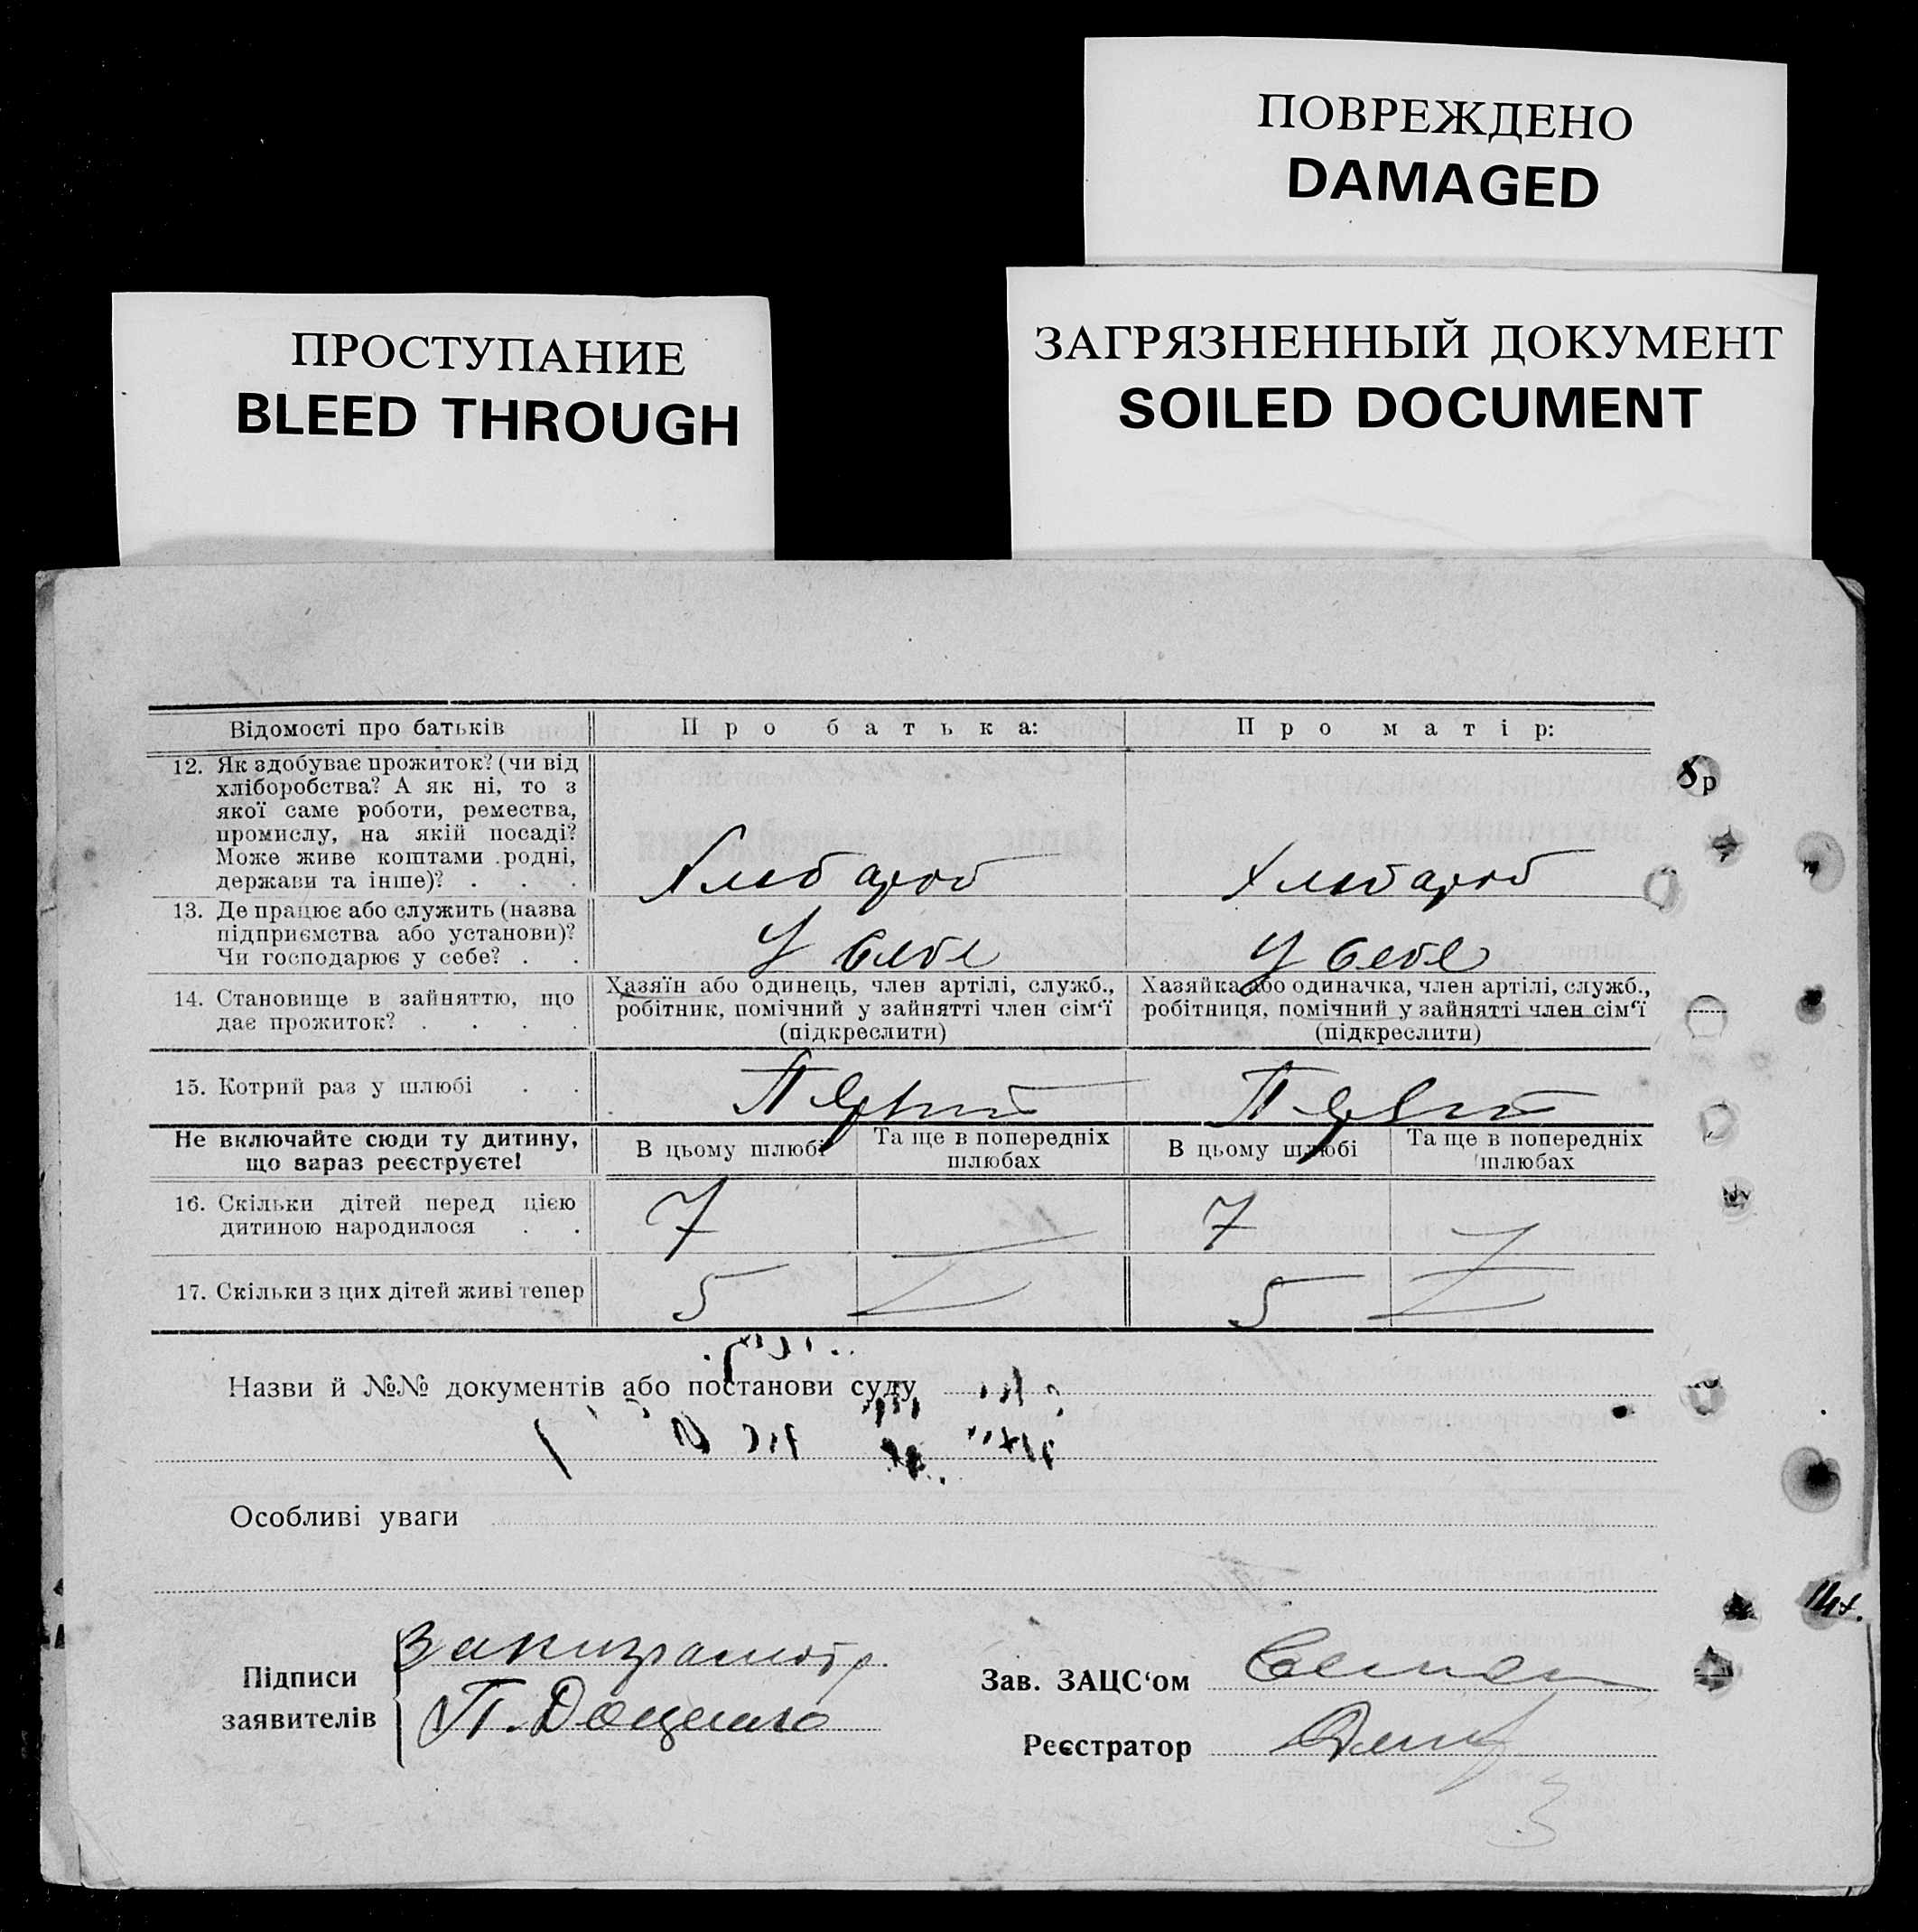 ПОВРЕЖДЕНО
DAMAGED
ПРОСТУПАНИЕ
BLEED THROUGH
ЗАГРЯЗНЕННЫЙ ДОКУМЕНТ
SOILED DOCUMENT
Відомості про батьків
Про батька:
Про матір:
12. Як здобуває прожиток? (чи від
хліборобства? А як ні, то з
якої саме роботи, ремества,
промислу, на якій посаді?
Може живе коштами родні,
держави та інше)? . . .
Хлебароб
Хлебароб
13. Де працює або служить (назва
підприємства або установи)?
Чи господарює у себе? . .
У себе
У себе
14. Становище в зайняттю, що
дає прожиток? . . . .
Хазяїн або одинець, член артілі, служб.,
робітник, помічний у зайнятті член сім‘ї
(підкреслити)
Хазяйка або одиначка, член артілі, служб.,
робітниця, помічний у зайнятті член сім‘ї
(підкреслити)
15. Котрий раз у шлюбі . .
Первий
Первий
Не включайте сюди ту дитину,
що зараз реєструєте!
В цьому шлюбі
Та ще в попередніх
шлюбах
В цьому шлюбі
Та ще в попередніх
шлюбах
16. Скільки дітей перед цією
дитиною народилося . .
7
7
17. Скільки з цих дітей живі тепер
5
5
Назви й №№ документів або постанови суду
Особливі уваги
Підписи
заявителів
П. Доценко
Зав. ЗАЦС‘ом
Реєстратор